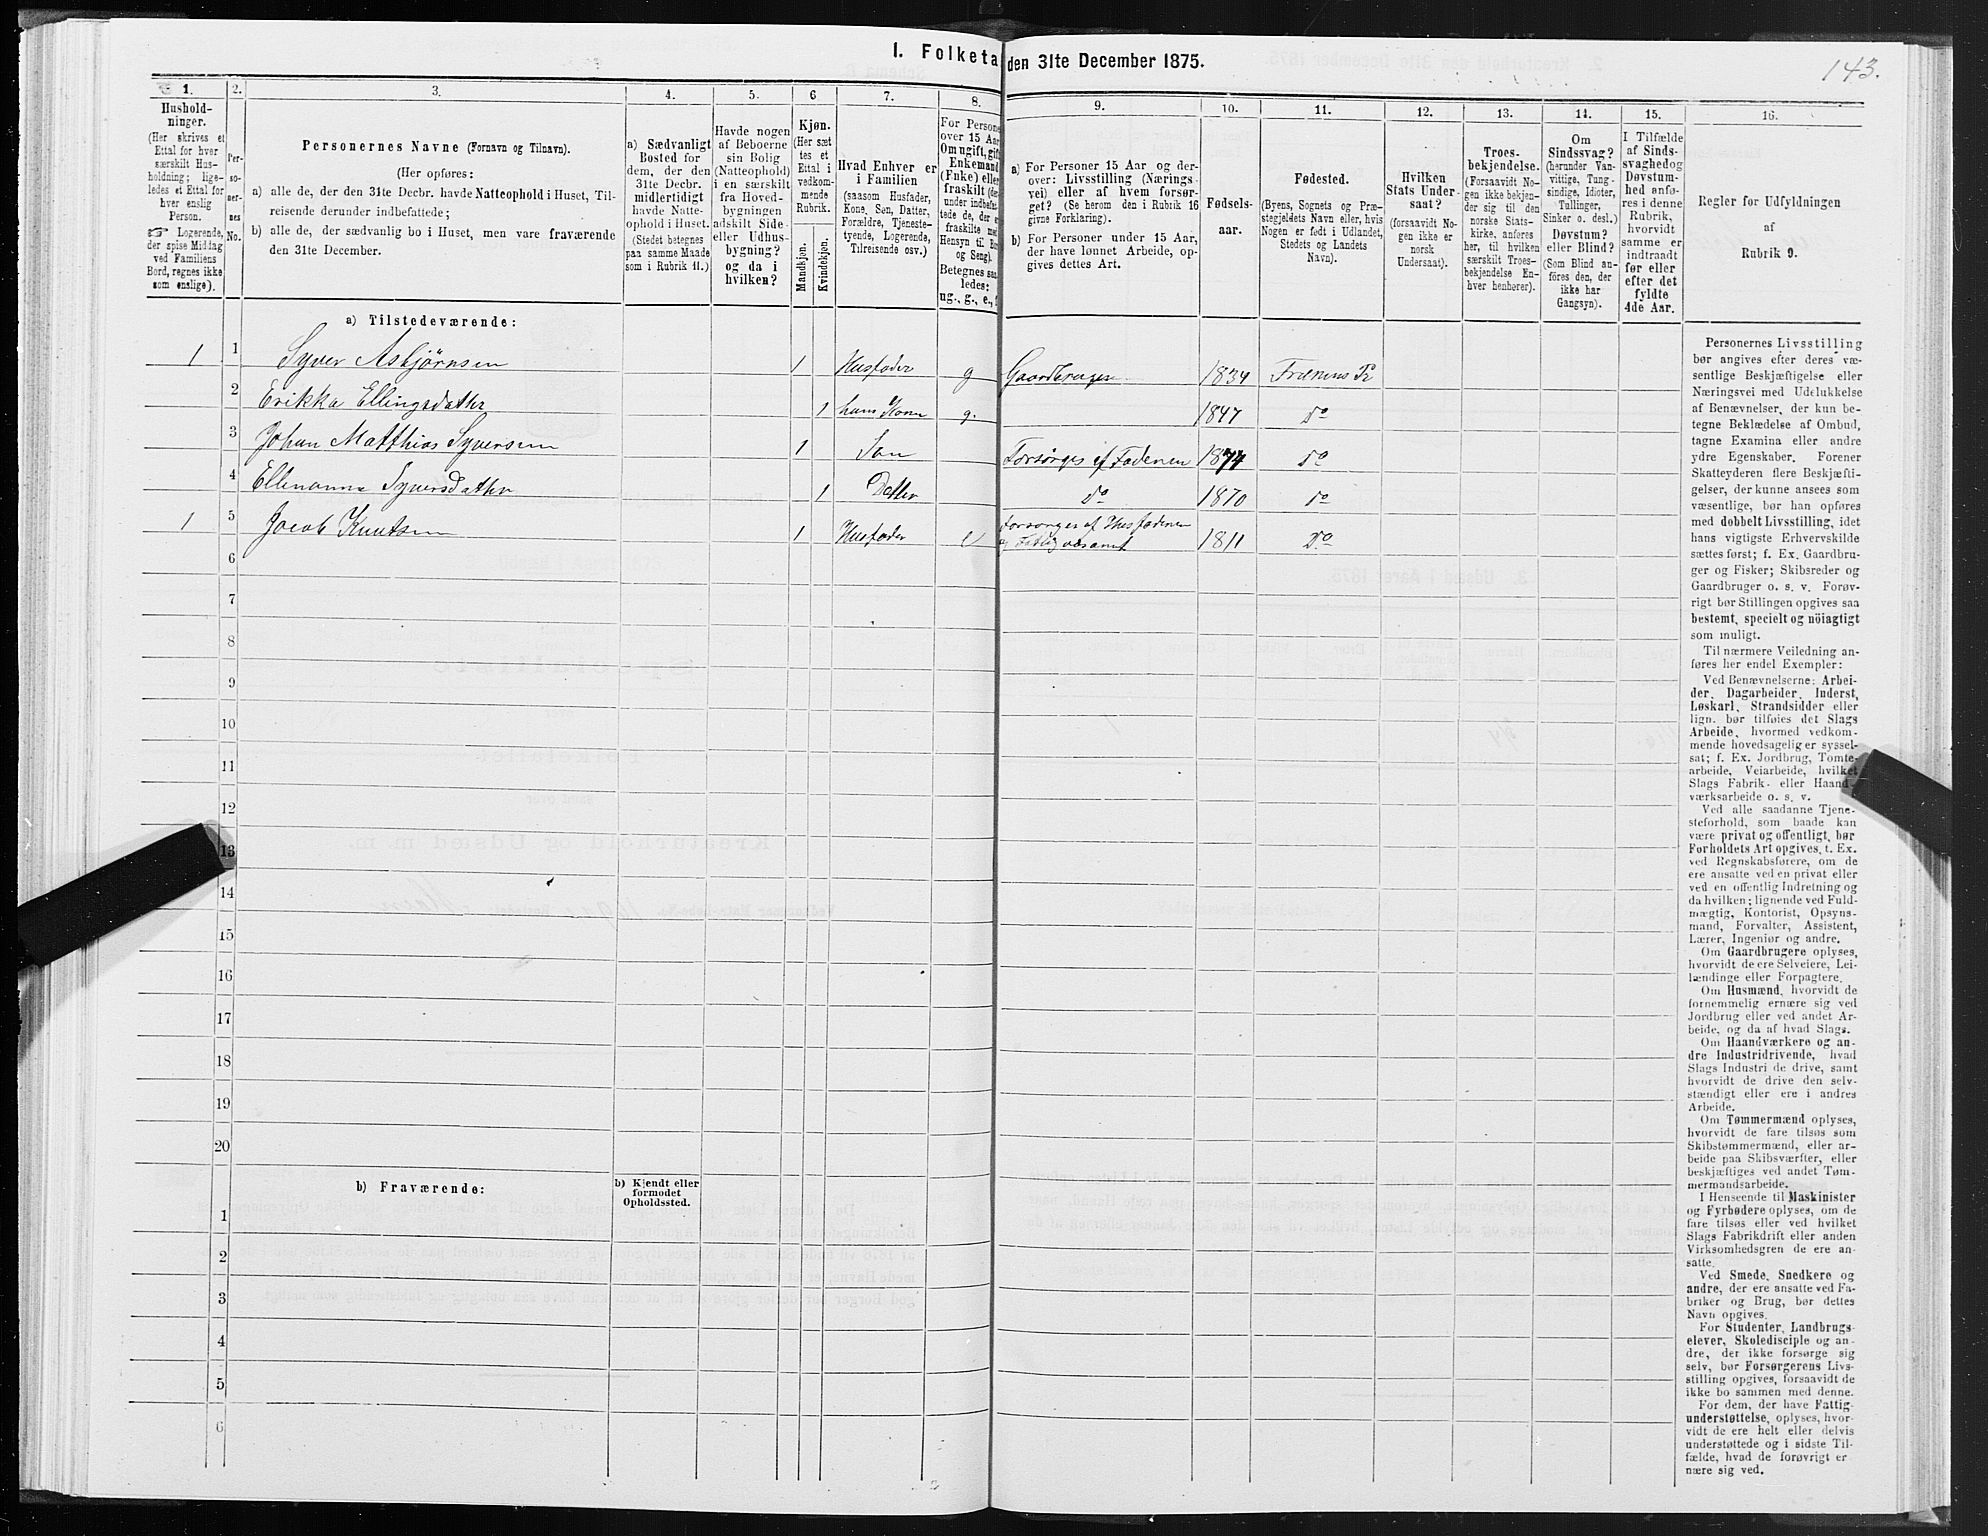 I. Folketa den 31te December 1875.
143.
1. 2. 3. 4. 5. 6 7. 8. 9. 10. 11. 12. 13. 14. 15. 16.
Hushold-
ninger.
(Her skrives et
Ettal for hver
særskilt Hus-
holdning; lige-
ledes et Ettal for
hver enslig
Person.
☞ Logerende,
der spise Middag
ved Familiens
Bord, regnes ikke
som enslige).
Per-
so-
ner-
nes
No.
Personernes Navne (Fornavn og Tilnavn).
(Her opføres:
a) alle de, der den 31te Decbr. havde Natteophold i Huset, Til-
reisende derunder indbefattede;
b) alle de, der sædvanlig bo i Huset, men vare fraværende
den 31te December.
a) Sædvanligt
Bosted for
dem, der den
31te Decbr.
midlertidigt
havde Natte-
ophold i Huset.
(Stedet betegnes
paa samme Maade
som i Rubrik 11.)
Havde nogen
af Beboerne
sin Bolig
(Natteophold)
i en særskilt
fra Hoved-
bygningen
adskilt Side-
eller Udhus-
bygning?
og da i
hvilken?
Kjøn.
(Her sæt
tes et
Ettal i
vedkom-
mende
Rubrik.
Mandkjøn.
Kvindekjøn.
Hvad Enhver er
i Familien
(saasom Husfader,
Kone, Søn, Datter,
Forældre, Tjeneste-
tyende, Logerende,
Tilreisende osv.)
For Persone
over 15 Aar
Om ugift, gift
Enkemand
(Enke) eller
fraskilt (der
under indbefat
tede de, der er
fraskilte med
Hensyn til Bor
og Seng).
Betegnes saa
ledes:
ug., g., e.,
a) For Personer 15 Aar og der-
over: Livsstilling (Nærings-
vei) eller af hvem forsør-
get? (Se herom den i Rubrik 16
givne Forklaring).
b) For Personer under 15 Aar,
der have lønnet Arbeide, op-
gives dettes Art.
Fødsels-
aar.
Fødested.
(Byens, Sognets og Præ-
stegjeldets Navn eller, hvis
Nogen er født i Udlandet,
Stedets og Landets
Navn).
Hvilken
Stats Under-
saat?
(forsaavidt No-
gen ikke er
norsk
Undersaat).
Troes-
bekjendelse.
(Forsaavidt No-
gen ikke bekjen-
der sig til den
norske Stats-
kirke, anføres
her, til hvilken
særskilt Troes-
bekjendelse En-
hver henhører).
Om
Sindssvag?
(herunder Van-
vittige, Tung-
sindige, Idioter,
Tullinger,
Sinker o. desl.)
Døvstum?
eller Blind?
(Som Blind an-
føres den, der
ikke har
Gangsyn).
I Tilfælde
af Sinds-
svaghed og
Døvstum-
hed anfø-
res i denne
Rubrik,
hvorvidt
samme er
indtraadt
før eller
efter det
fyldte
4de Aar.
Regler for Udfyldningen
af
Rubrik 9.
a) Tilstedeværende:
1 1 Syver Asbjørnsen 1 Husfader g Gaardbruger 1834 Frænens Pr
2 Erikka Ellingsdatter 1 hans Kone g. 1847 Do
3 Johan Matthias Syversen 1 Søn Forsørges af Faderen 1874 Do
4 Ellenanna Syversdatter 1 Datter Do 1870 Do
1 5 Jacob Knutsen 1 Husfader e Forsørges af Husfaderen
og Fattigvæsenet 1811 Do
6
7
8
9
10
11
12
13
14
15
16
17
18
19
20
b) Fraværende:
b) Kjendt eller
formodet
Opholdssted.
1
2
3
4
5
6
Personernes Livsstilling
bør angives efter deres væ-
sentlige Beskjæftigelse eller
Næringsvei med Udelukkelse
af Benævnelser, der kun be-
tegne Beklædelse af Ombud,
tagne Examina eller andre
ydre Egenskaber. Forener
Skatteyderen flere Beskjæfti-
gelser, der kunne ansees som
væsentlige, bør han opføres
med dobbelt Livsstilling, idet
hans vigtigste Erhvervskilde
sættes først; f. Ex. Gaardbru-
ger og Fisker; Skibsreder og
Gaardbruger o. s. v. Forøv-
rigt bør Stillingen opgives saa
bestemt, specielt og nöiagtigt
som muligt.
Til nærmere Veiledning an-
føres her endel Exempler:
Ved Benævnelserne: Arbei-
der, Dagarbeider, Inderst,
Løskarl, Strandsidder eller
lign. bør tilføies det Slags
Arbeide, hvormed vedkom-
mende hovedsagelig er syssel-
sat; f. Ex. Jordbrug, Tomte-
arbeide, Veiarbeide, hvilket
Slags Fabrik- eller Haand-
værksarbeide o. s. v.
Ved alle saadanne Tjene-
steforhold, som baade kan
være privat og offentligt, bør
Forholdets Art opgives, t. Ex.
ved Regnskabsførere, om de
ere ansatte ved en privat eller
ved en offentlig Indretning og
da hvilken; lignende ved Fuld-
mægtig, Kontorist, Opsyns-
mand, Forvalter, Assistent,
Lærer, Ingeniør og andre.
Om Gaardbrugere oplyses,
hvorvidt de ere Selveiere, Lei-
lændinge eller Forpagtere.
Om Husmænd, hvorvidt de
fornemmelig ernære sig ved
Jordbrug eller ved andet Ar-
beide, og da af hvad Slags.
Om Haandværkere og an-
dre Industridrivende, hvad
Slags Industri de drive, samt
hvorvidt de drive den selv-
stændigt eller ere i andres
Arbeide.
Om Tømmermænd oplyses,
hvorvidt de fare tilsøs som
Skibstømmermænd, eller ar-
beide paa Skibsværfter, eller
beskjæftiges ved andet Tøm-
mermandsarbeide.
I Henseende til Maskinister
og Fyrbødere oplyses, om de
fare tilsøs eller ved hvilket
Slags Fabrikdrift eller anden
Virksomhedsgren de ere an-
satte.
Ved Smede, Snedkere og
andre, der ere ansatte ved Fa-
briker og Brug, bør dettes
Navn opgives.
For Studenter, Landbrugs-
elever, Skoledisciple og an-
dre, der ikke forsørge sig
selv, bør Forsørgerens Livs-
stilling opgives, forsaavidt de
ikke bo sammen med denne.
For dem, der have Fattig-
understøttelse, oplyses, hvor-
vidt de ere helt eller delvis
understøttede og i sidste Til-
fælde, hvad de forøvrigt er
nære sig ved.